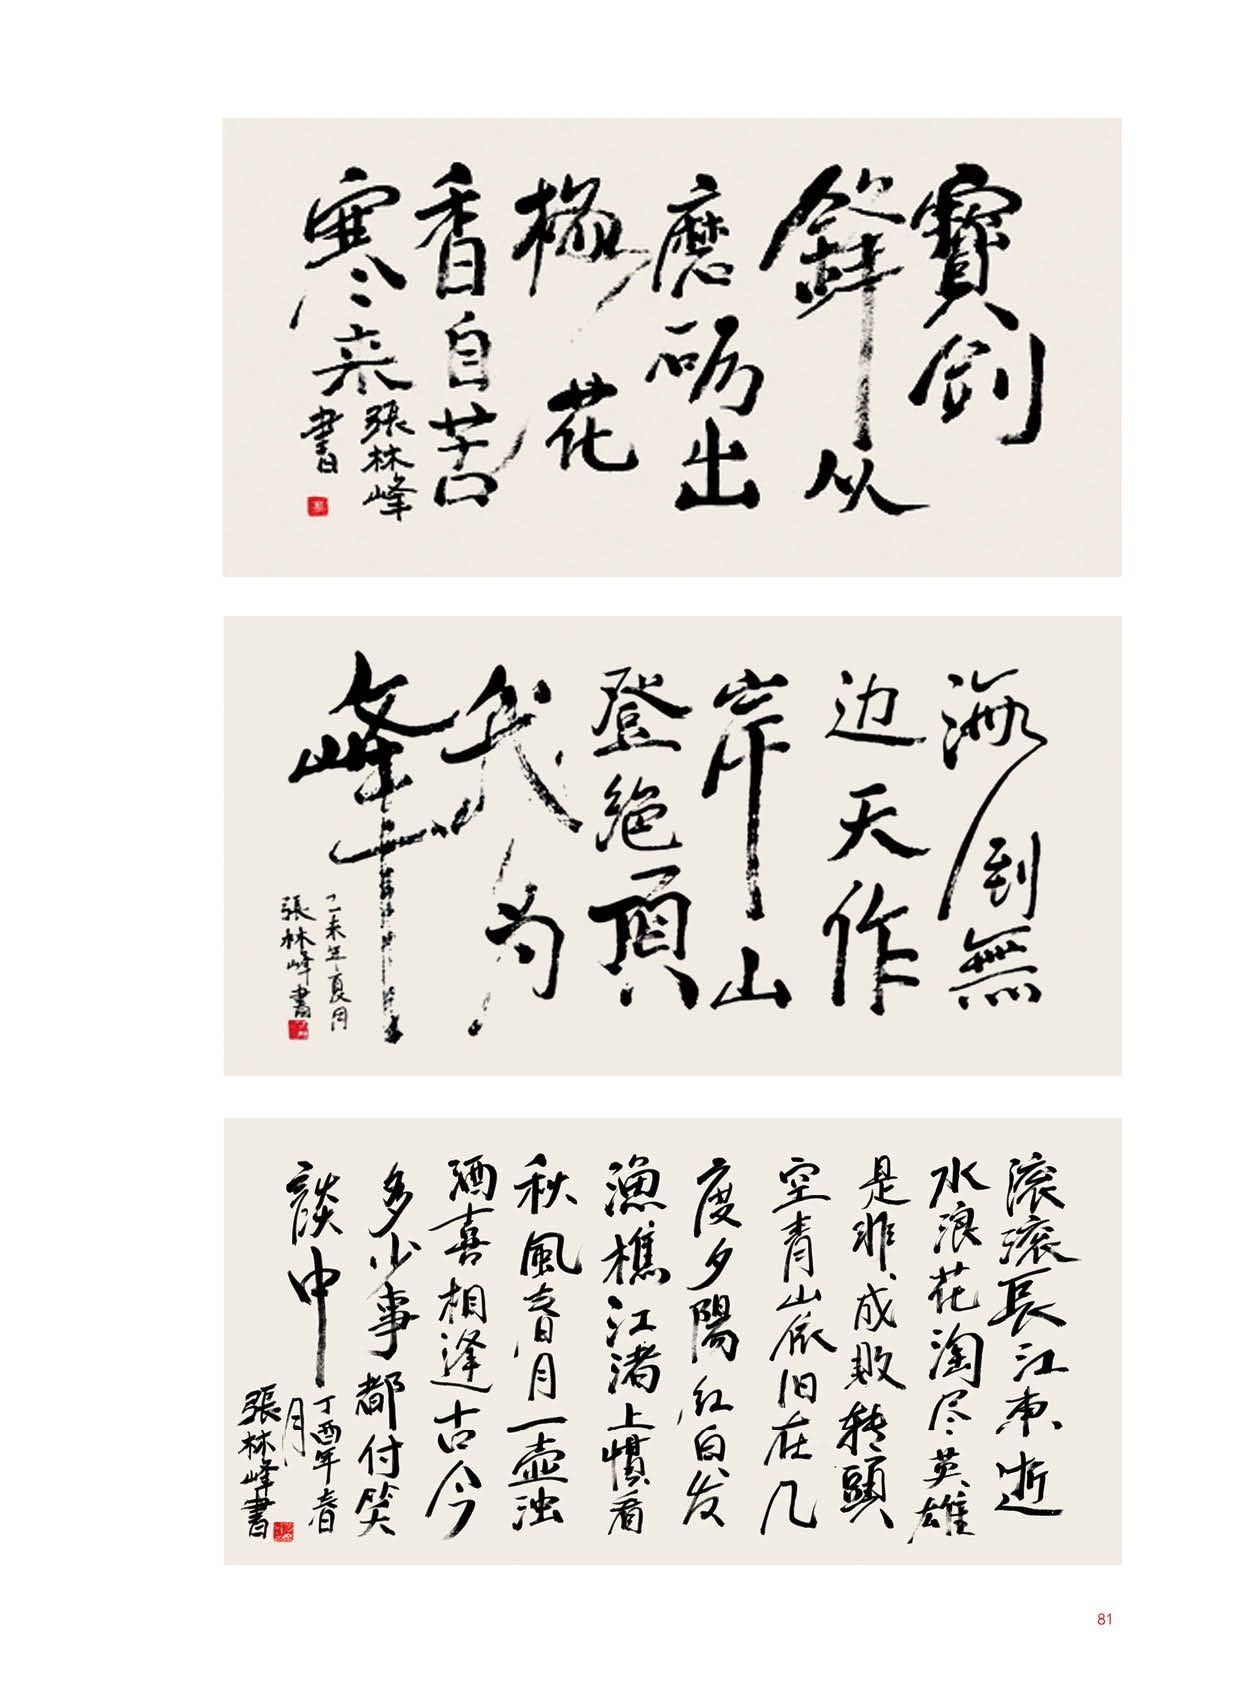 寶劍
鋒从
磨砺出
梅花
香自苦
寒来
張林峰
書
海到無
边天作
岸山
登絶頂
我为
峰
乙未年夏月
張林峰書
滚滚長江東逝
水浪花淘尽英雄
是非成败转頭
空青山依旧在几
度夕陽红白发
漁樵江渚上慣看
秋風春月一壶浊
酒喜相逢古今
多少事都付笑
談中
丁酉年春
月
張林峰書
81